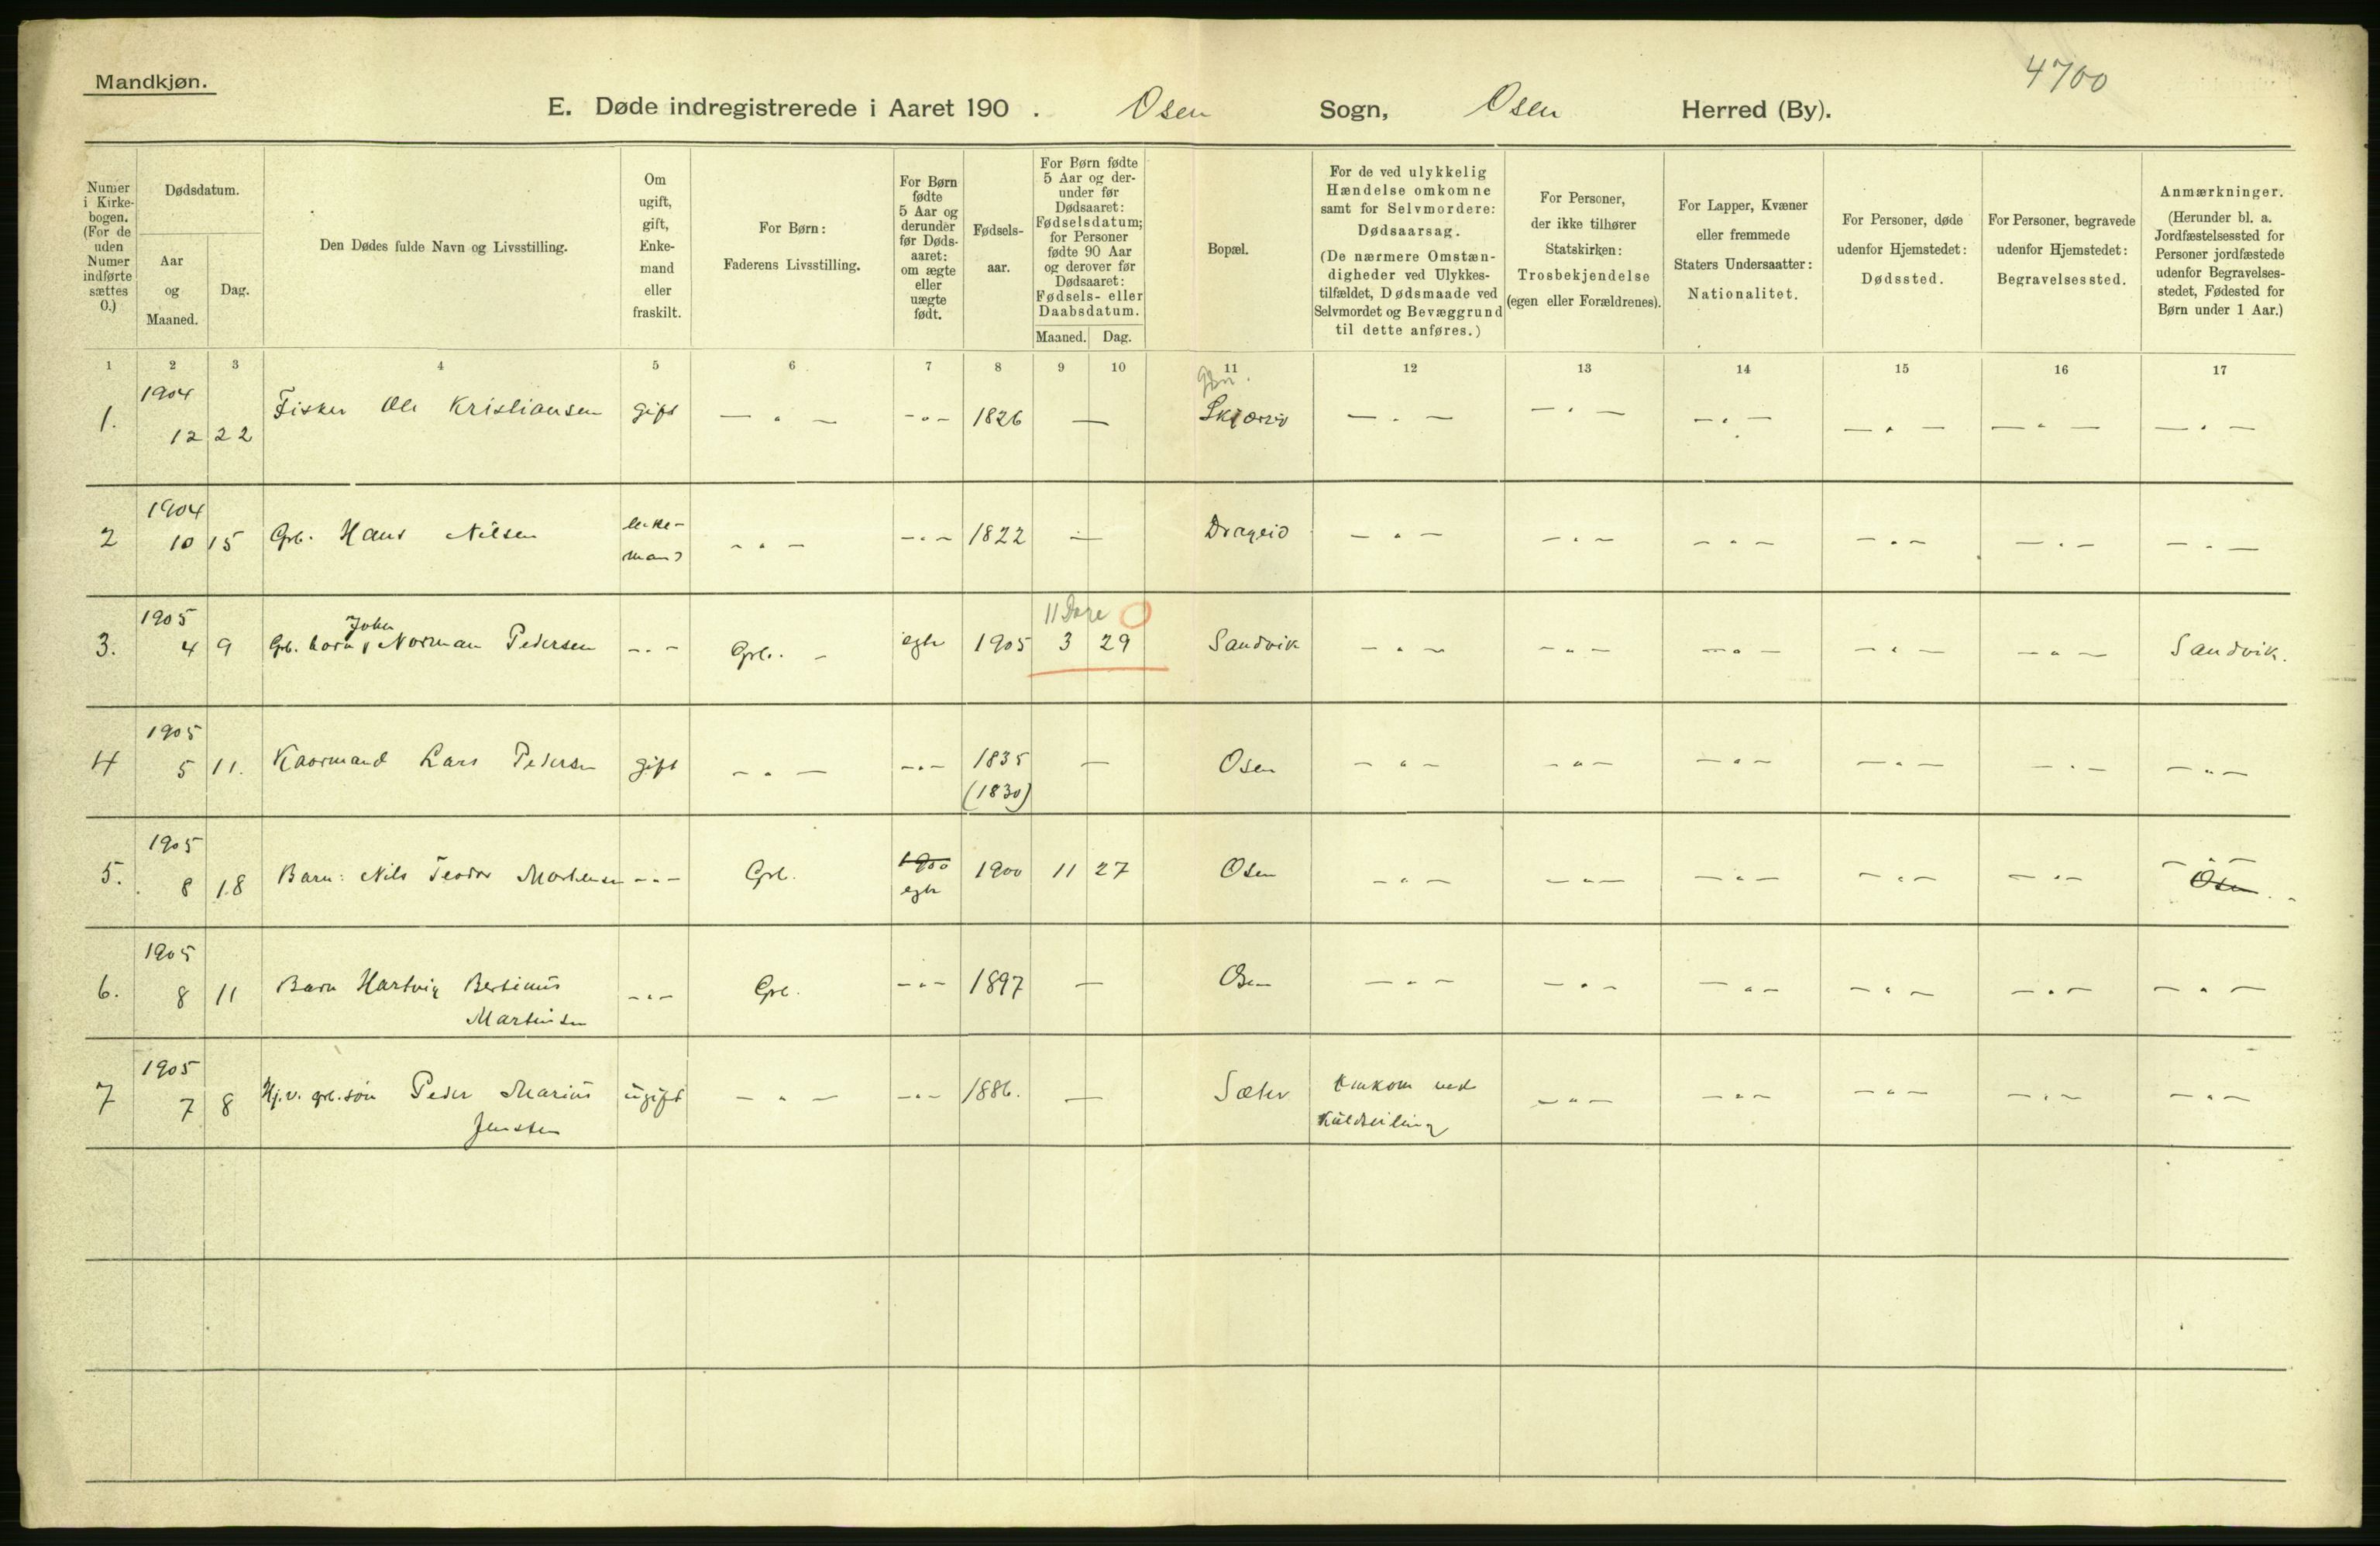 Mandkjøn.
4700
E. Døde indregistrerede i Aaret 190 . Osen Sogn, Osen Herred (By).
Numer i Kirke-bogen. (For de uden Numer indførte sættes 0.)
Dødsdatum.
Aar og Maaned.
Dag.
Den Dødes fulde Navn og Livsstilling.
Om ugift, gift, Enke-mand eller fraskilt.
For Børn: Faderens Livsstilling.
For Børn fødte 5 Aar og derunder før Døds-aaret: om ægte eller uægte født.
Fødsels-aar.
For Børn fødte 5 Aar og der-under før Dødsaaret: Fødselsdatum; for Personer fødte 90 Aar og derover før Dødsaaret: Fødsels- eller Daabsdatum.
Maaned. Dag.
Bopæl.
For de ved ulykkelig Hændelse omkomne samt for Selvmordere: Dødsaarsag. (De nærmere Omstæn-digheder ved Ulykkes-tilfældet, Dødsmaade ved Selvmordet og Bevæggrund til dette anføres.)
For Personer, der ikke tilhører Statskirken: Trosbekjendelse (egen eller Forældrenes).
For Lapper, Kvæner eller fremmede Staters Undersaatter: Nationalitet.
For Personer, døde udenfor Hjemstedet: Dødssted.
For Personer, begravede udenfor Hjemstedet: Begravelsessted.
Anmærkninger. (Herunder bl. a. Jordfæstelsessted for Personer jordfæstede udenfor Begravelses-stedet, Fødested for Børn under 1 Aar.)
1 2 3 4 5 6 7 8 9 10 11 12 13 14 15 16 17
1904
1. 12 22 Fisker Ole Kristiansen gift — " — — " — 1826 — — " — — " — — " — — " — — " — — " —
1904
2 10 15 Grb. Hans Nilsen Enke-mand — " — — " — 1822 — Drageid — " — — " — — " — — " — — " — — " —
1905 11 Dage
John
3. 4 9 Grb. barn Norman Pedersen — " — Grb. — egte 1905 3 29 Sandvik — " — — " — — " — — " — — " — Sandvik.
1905
4 5 11. Kaarmand Lars Pedersen gift — " — — " — 1835 — Osen — " — — " — — " — — " — — " — — " —
(1830)
1905 1900
5. 8 18 Barn: Nils Teodor — " — Grb. egte 1900 11 27 Osen — " — — " — — " — — " — — " — — " — Osen
1905
6. 8 11 Barn Hartvig Bertinus — " — Grb. — " — 1897 — Osen — " — — " — — " — — " — — " — — " —
Martinsen
1905
7 7 8 Hj.v. grb. søn Peder Marius ugift — " — — " — 1886. — Sæter Omkom ved — " — — " — — " — — " — — " —
Jensen Kuldseiling